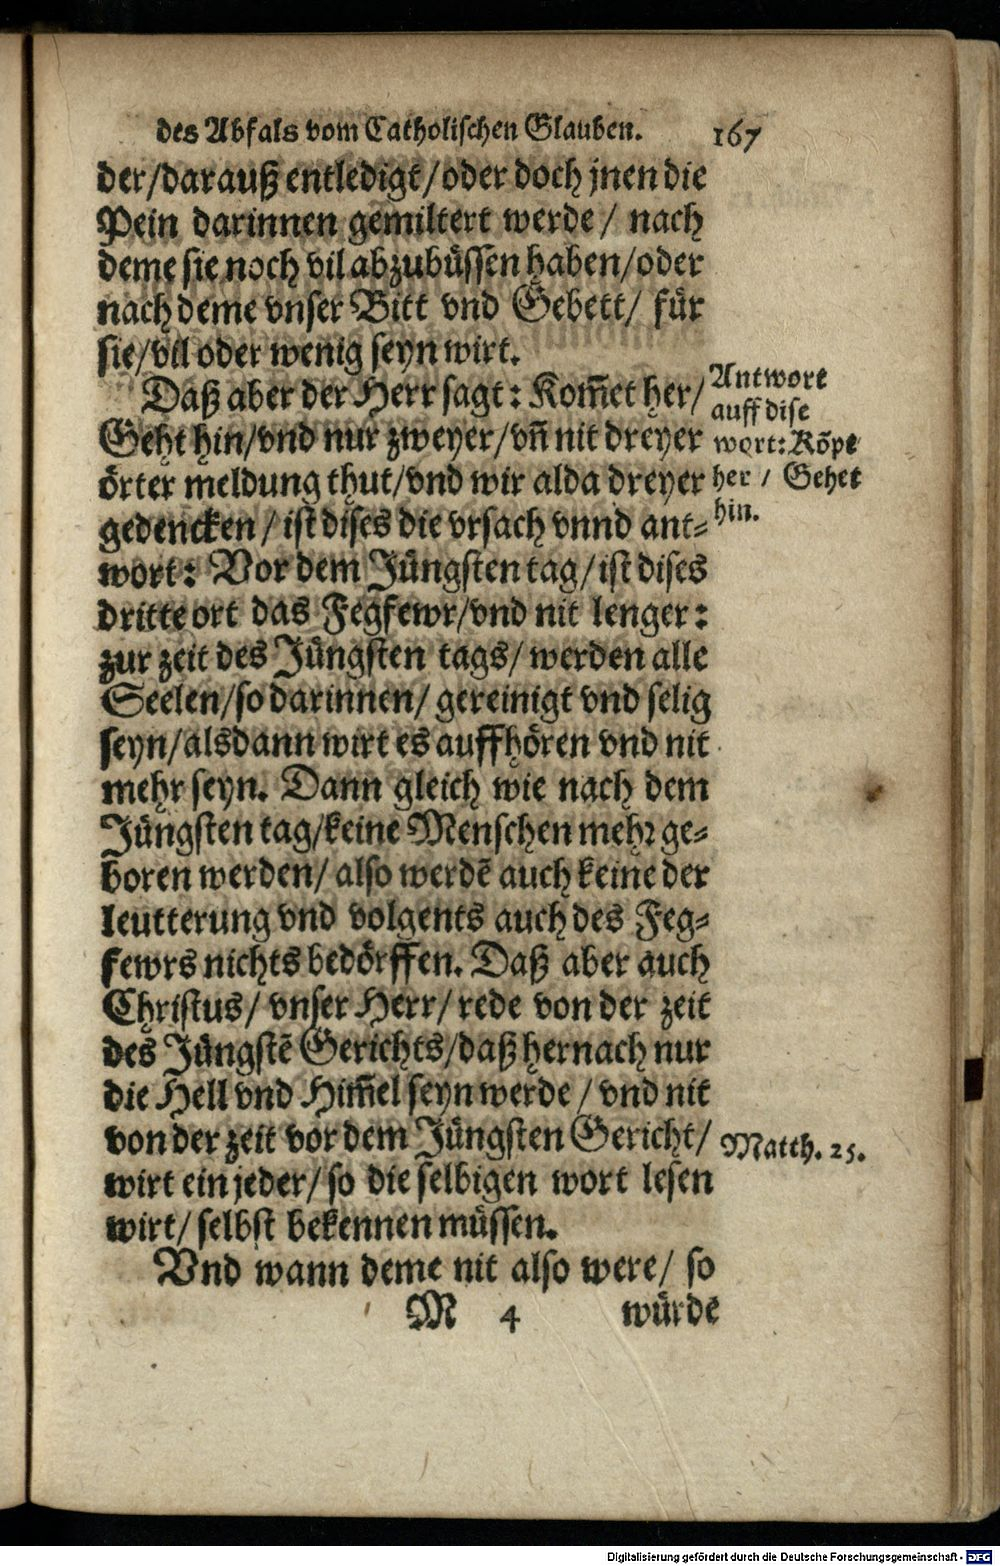 des Abfals vom Catholischen Glauben. 167
der/darauß entledigt/oder doch jnen die
Pein darinnen gemiltert werde/ nach
deme sie noch vil abzubüssen haben/oder
nach deme vnser Bitt vnd Gebett/ für
sie/vil oder wenig seyn wirt.
Daß aber der Herr sagt: Kom̃et her/
Geht hin/vnd nur zweyer/vñ nit dreyer
örter meldung thut/vnd wir alda dreyer
gedencken/ ist dises die vrsach vnnd ant-
wort: Vor dem Jüngsten tag/ist dises
dritte ort das Fegfewr/vnd nit lenger:
zur zeit des Jüngsten tags/ werden alle
Seelen/so darinnen/ gereinigt vnd selig
seyn/alsdann wirt es auffhören vnd nit
mehr seyn. Dann gleich wie nach dem
Jüngsten tag/keine Menschen mehr ge-
boren werden/ also werdẽ auch keine der
leutterung vnd volgents auch des Feg-
fewrs nichts bedörffen. Daß aber auch
Christus/ vnser Herr/ rede von der zeit
des Jüngstẽ Gerichts/daß hernach nur
die Hell vnd Him̃el seyn werde/ vnd nit
von der zeit vor dem Jüngsten Gericht/
wirt ein jeder/ so die selbigen wort lesen
wirt/ selbst bekennen müssen.
Vnd wann deme nit also were/ so
M 4 würde
Antwort
auff dise
wort: Kõpt
her / Gehet
hin.
Matth. 25.
Digitalisierung gefördert durch die Deutsche Forschungsgemeinschaft - DFG